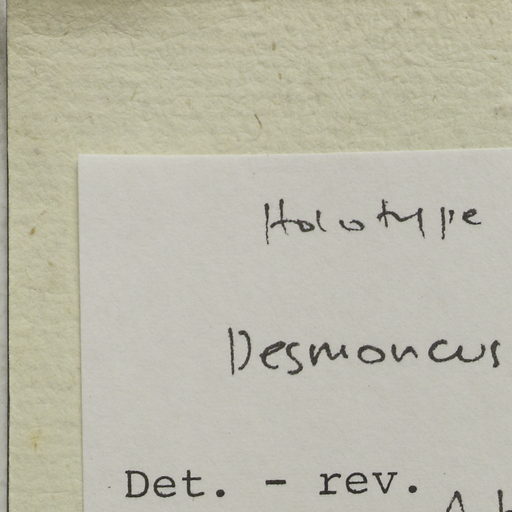 Holotype
Desmoncus
Det. - rev.